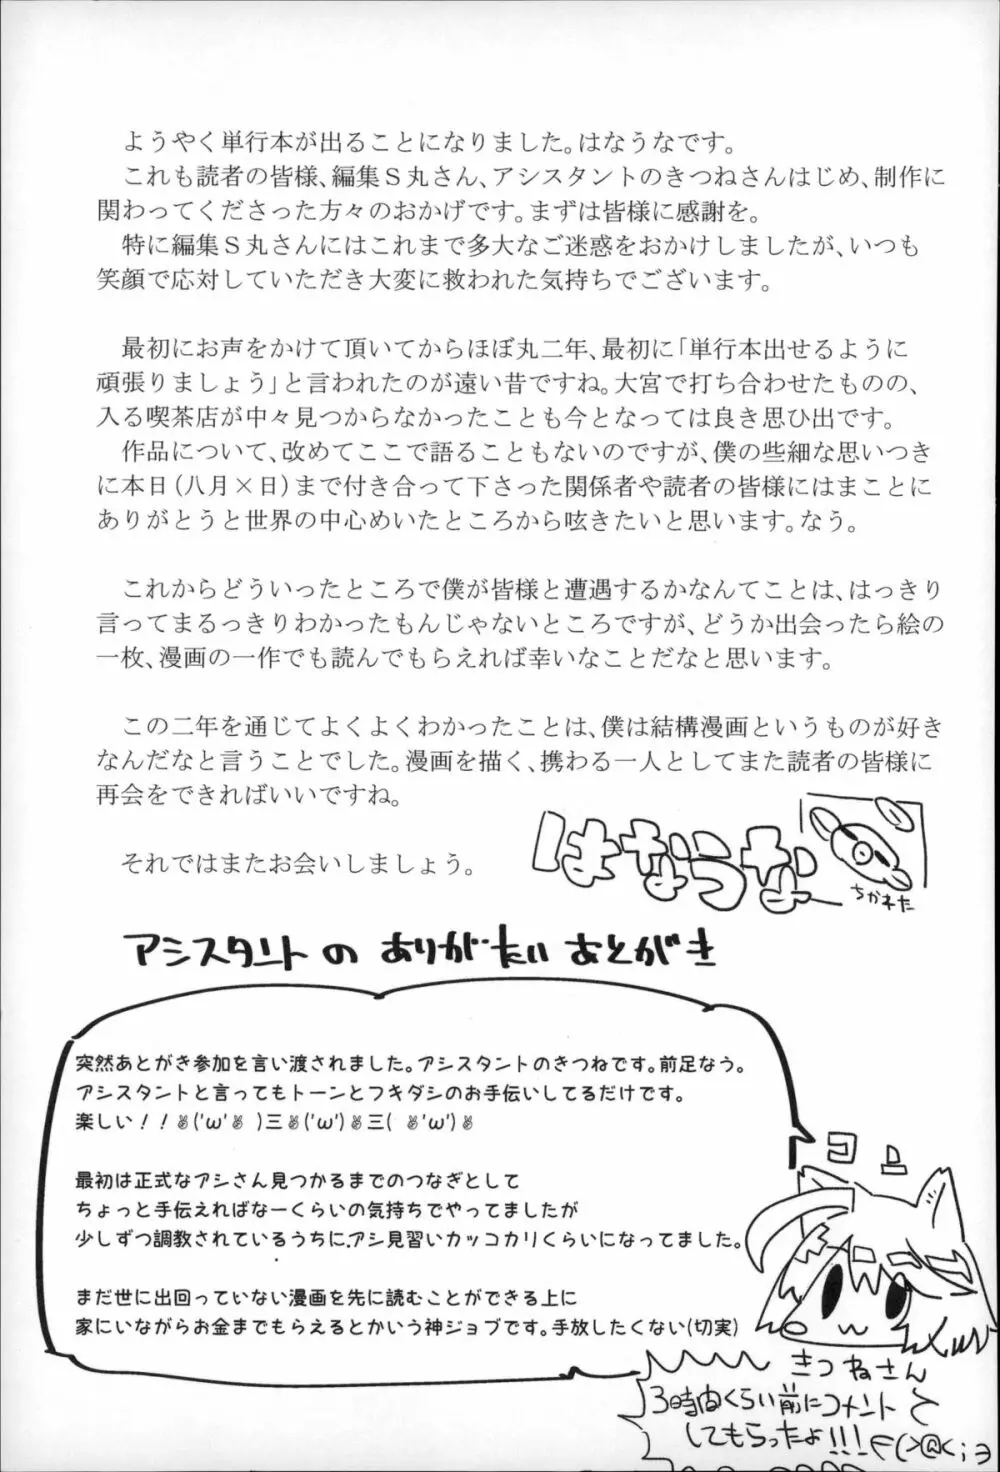 ようやく単行本が出ることになりました。はなうなです。
これも読者の皆様、編集Ｓ丸さん、アシスタントのきつねさんはじめ、制作に
関わってくださった方々のおかげです。まずは皆様に感謝を。
特に編集Ｓ丸さんにはこれまで多大なご迷惑をおかけしましたが、いつも
笑顔で応対していただき大変に救われた気持ちでございます。
最初にお声をかけて頂いてからほぼ丸二年、最初に「単行本出せるように
頑張りましょう」と言われたのが遠い昔ですね。大宮で打ち合わせたものの、
入る喫茶店が中々見つからなかったことも今となっては良き思ひ出です。
作品について、改めてここで語ることもないのですが、僕の些細な思いつき
に本日（八月×日）まで付き合って下さった関係者や読者の皆様にはまことに
ありがとうと世界の中心めいたところから呟きたいと思います。なう。
これからどういったところで僕が皆様と遭遇するかなんてことは、はっきり
言ってまるっきりわかったもんじゃないところですが、どうか出会ったら絵の
一枚、漫画の一作でも読んでもらえれば幸いなことだなと思います。
この二年を通じてよくよくわかったことは、僕は結構漫画というものが好き
なんだなと言うことでした。漫画を描く、携わる一人としてまた読者の皆様に
再会をできればいいですね。
それではまたお会いしましょう。
はなうな
ちかれた
アシスタントの ありがたい あとがき
突然あとがき参加を言い渡されました。アシスタントのきつねです。前足なう。
アシスタントと言ってもトーンとフキダシのお手伝いしてるだけです。
楽しい！！✌('ω'✌ )三✌('ω')✌三( ✌'ω')✌
最初は正式なアシさん見つかるまでのつなぎとして
ちょっと手伝えればなーくらいの気持ちでやってましたが
少しずつ調教されているうちに、アシ見習いカッコカリくらいになってました。
まだ世に出回っていない漫画を先に読むことができる上に
家にいながらお金までもらえるとかいう神ジョブです。手放したくない(切実)
コン
きつねさん
3時間くらい前にコメント
してもらったよ!!!